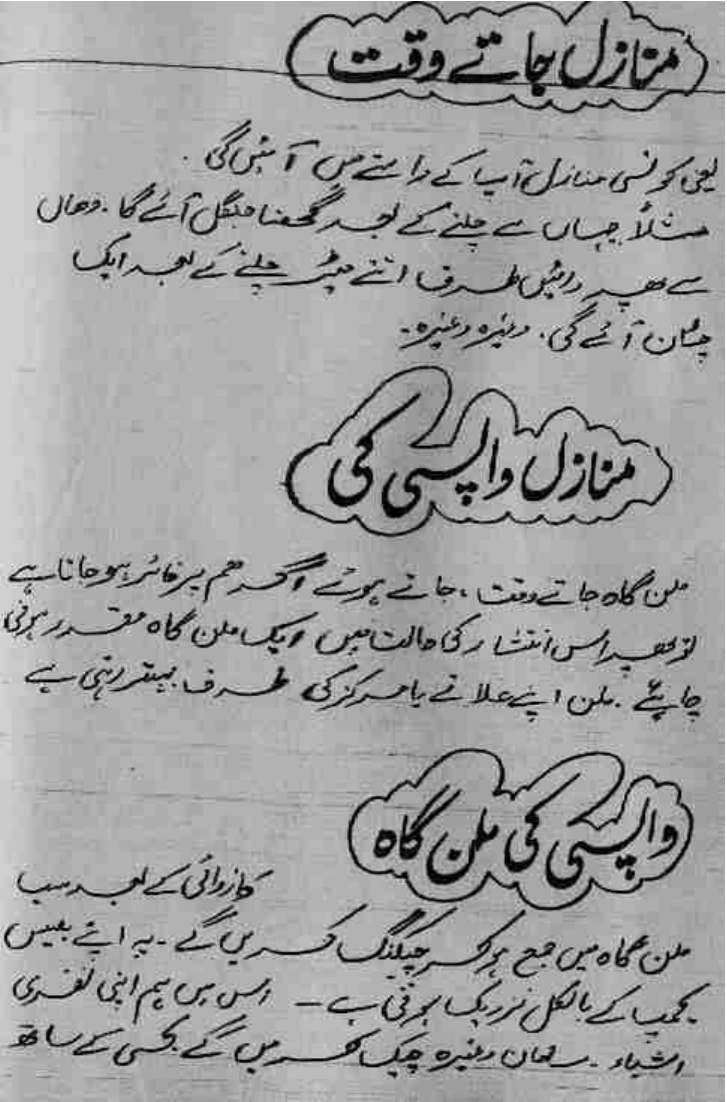 منازل جاتے وقت
یعنی کونسی منازل آپ کے راستے میں آئیں گی .
مثلاً یہاں سے چلنے کے بعد گھنا جنگل آئے گا . وھاں
سے پھر دائیں طرف اتنے میٹر چلنے کے بعد ایک
چٹان آئے گی . وغیرہ وغیرہ -
منازل واپسی کی
ملن گاہ جاتے وقت ، جاتے ہوئے اگر ھم پر فائر ہو جاتا ہے
تو پھر اس انتشار کی حالت میں ایک ملن گاہ مقرر ہونی
چاہئے . ملن اپنے علاقے یا مرکز کی طرف بہتر رہتی ہے
واپسی کی ملن گاہ
کاروائی کے بعد سب
ملن گاہ میں جمع ہو کر چیکنگ کریں گے - یہ اپنے بیس
کیمپ کے بالکل نزدیک ہوتی ہے - اس میں ہم اپنی نفری
اشیاء - سامان وغیرہ چیک کریں گے . کسی کے ساتھ